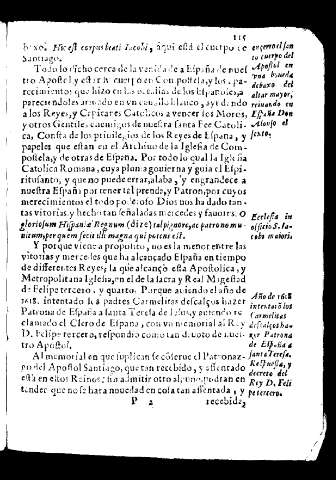 115
baxo. Hic est corpus beati Iacobi, aqui està el cuerpo de
Santiago.
Todo lo dicho cerca de la venida a España de nues
tro Apostol y estar su cuerpo en Compostela, y los
recimientos que hizo en las batallas de los Españoles, a
pareciendoles armado en vn cauallo blanco, ayudando
a los Reyes, y Capitanes Catolicos a vencer los Moros,
y otros Gentiles enemigos de nuestra santa Fee Catoli
ca, Consta de los priuilegios de los Reyes de España, y
papeles que estan en el Archiuo de la Iglesia de Com-
postela, y de otras de España. Por todo lo qual la Iglesia
Catolica Romana, cuya pluma gouierna y guia el Espi-
ritu santo, y que no puede errar, alaba, y engrandece a
nuestra España por tener tal prenda, y Patron, por cuyos
merecimientos el todo poderoso Dios nos ha dado tan-
tas vitorias, y hecho tan señaladas mercedes y fauores. O
gloriosum Hispaniæ Regnum (dize) tali pignore, ac patrono mu-
nitum, per quem fecit illi magna qui potens est.
Y porque viene a proposito, no es la menor entre las
vitorias y mercedes que ha alcançado España en tiempo
de differentes Reyes, la que alcançò esta Apostolica, y
Metropolitana Iglesia, en el de la sacra y Real Magestad
de Felipe tercero, y quarto. Porque auiendo el año de
1618. intentado los padres Carmelitas descalços hazer
Patrona de España a santa Teresa de Iesus, y auiendo re
clamado el Clero de España, con vn memorial al Rey
D. Felipe tercero, respondio como tan deuoto de nues-
tro Apostol.
Al memorial en que suplican se cōserue el Patronaz-
go del Apostol Santiago, que tan recebido, y assentado
està en estos Reinos, sin admitir otro alguno, podran en
tender que no se harà nouedad en cosa tan assentada, y
P 2 recebida,
engerro el san
to cuerpo del
Apostol en
vna boueda
debaxo del
altar mayor,
reinando en
España Don
Alonso el
sexto.
Ecclesia in
officio S. Ia-
cobi maioris.
Año de 1618
intentarō los
Carmelitas
descalços ha-
zer Patrona
de España a
santa Teresa.
Respuesta, y
decreto del
Rey D. Feli
pe tercero.